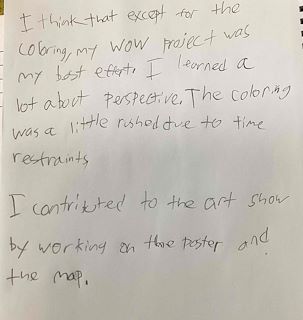 I think that except for the
coloring, my WOW project was
my best effort. I learned a
lot about perspective. The coloring
was a little rushed due to time
restraints
I contributed to the art show
by working on the poster and
the map.